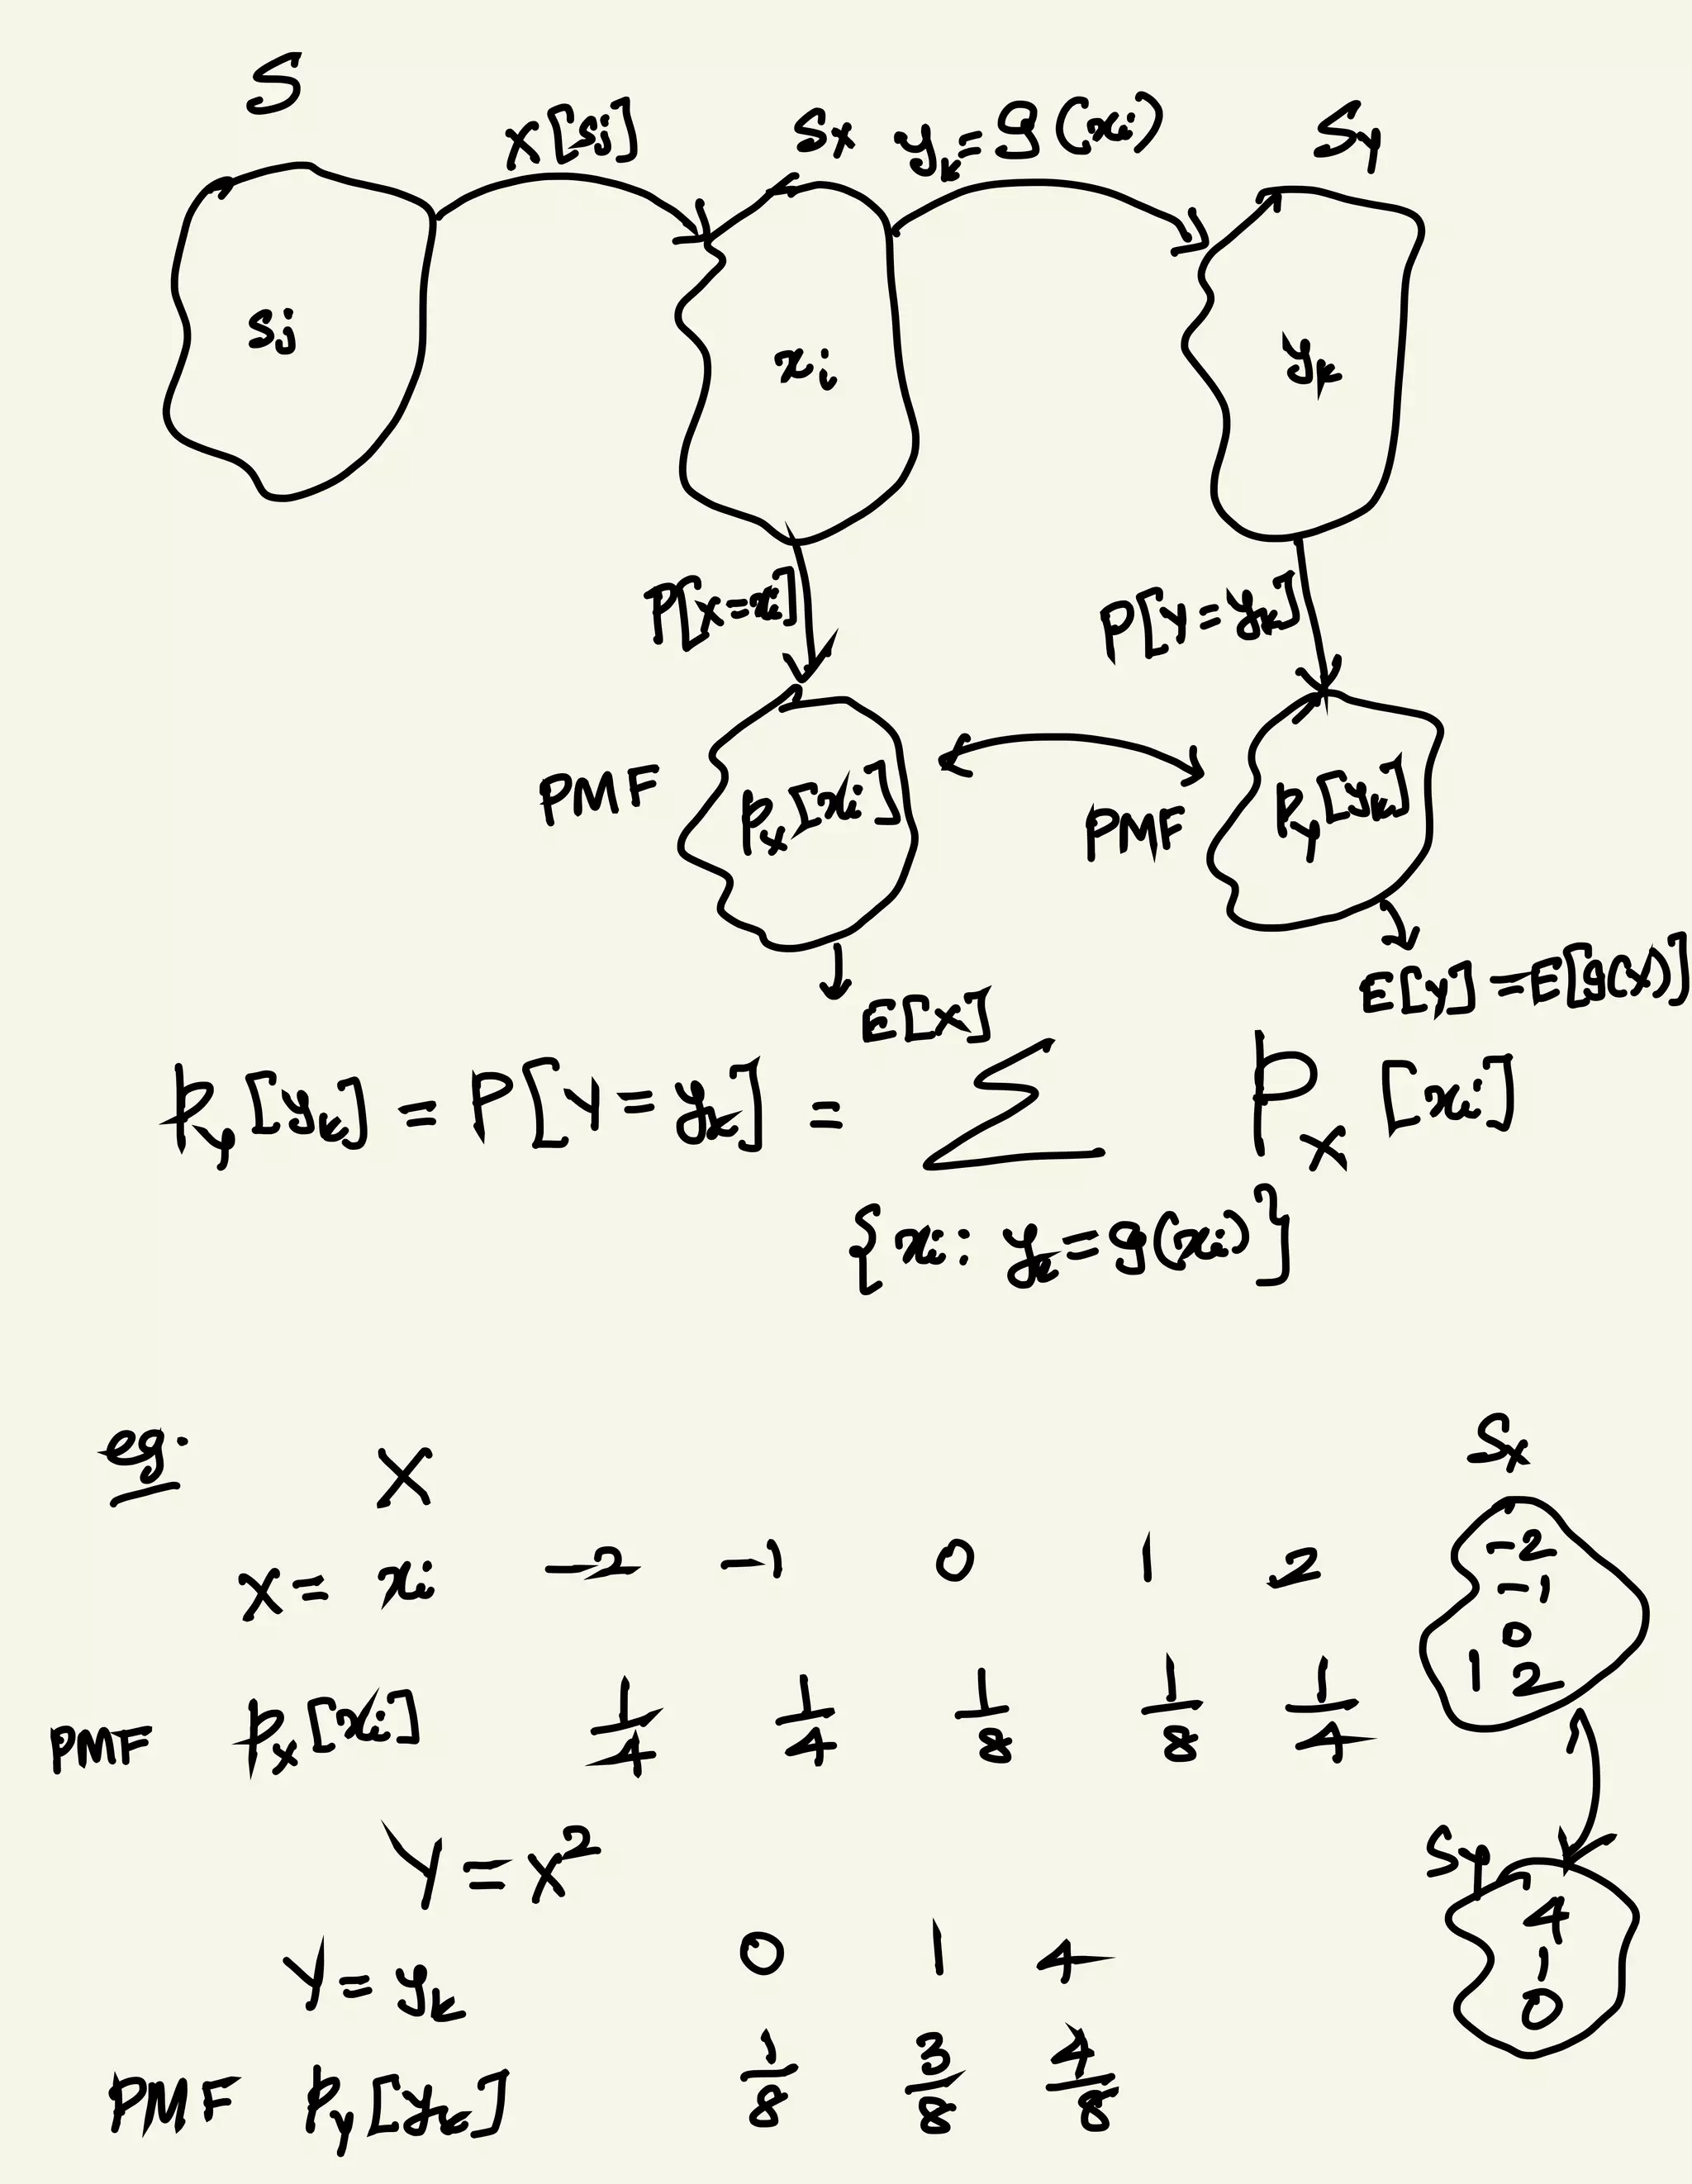 S
X[sj] Sx yk = g(xi) Sy
sj xi yk
P[X=xi] P[Y=yk]
PMF px[xi] PMF py[yk]
E[X] E[Y] = E[g(X)]
py[yk] = P[Y=yk] = Σ px[xi]
{xi: yk=g(xi)}
eg. X Sx
X = xi -2 -1 0 1 2
-2
-1
0
1 2
PMF px[xi] 1/4 1/4 1/8 1/8 1/4
Y = X²
Sy
4
1
0
Y = yk 0 1 4
PMF py[yk] 1/8 3/8 4/8